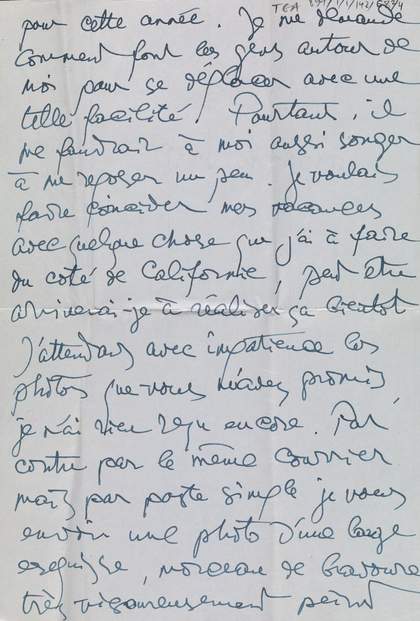 TGA 891/1/1/142/68 3/4
pour cette année. Je me demande
comment font les gens autour de
moi pour se déplacer avec une
telle facilité. Pourtant, il
me faudrait à moi aussi songer
à me reposer un peu. Je voulais
faire coincider mes vacances
avec quelque chose que j'ai à faire
du coté de Californie, peut être
arriverai-je à réaliser ça bientot
J'attendais avec impatience les
photos que vous m'avez promis,
je n'ai rien reçu encore. Par
contre par le même courrier
mais par poste simple je vous
envoie une photo d'une large
esquisse, morceau de bravoure
très vigoureusement peint